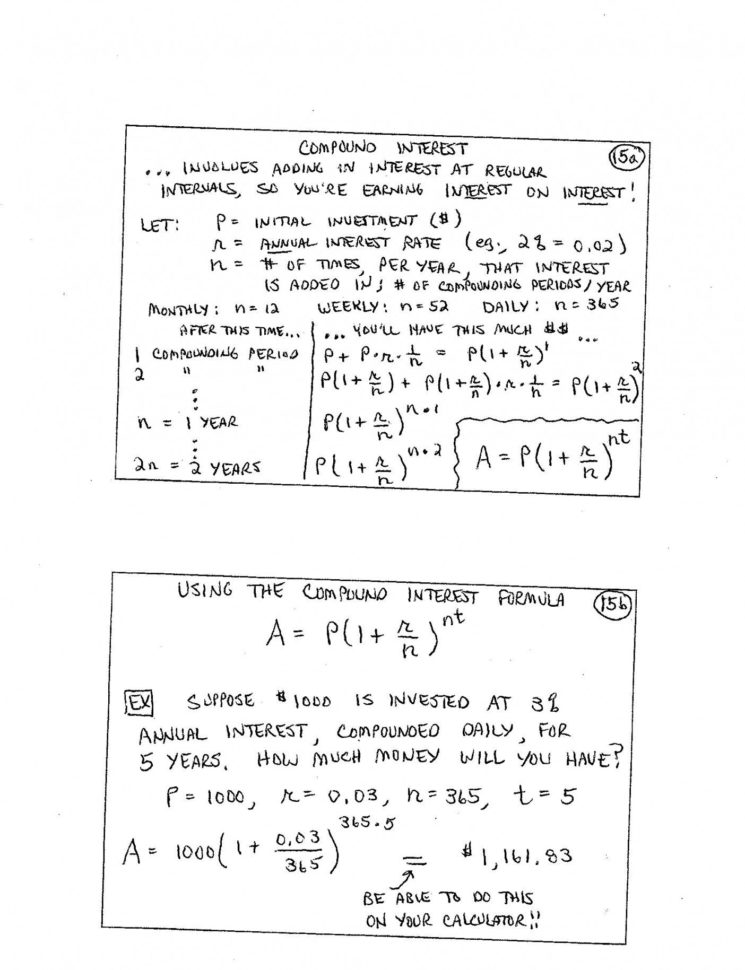 COMPOUND INTEREST 15a
... INVOLVES ADDING IN INTEREST AT REGULAR
INTERVALS, SO YOU'RE EARNING INTEREST ON INTEREST!
LET: P = INITIAL INVESTMENT ($)
r = ANNUAL INTEREST RATE (eg., 2% = 0.02)
n = # OF TIMES, PER YEAR, THAT INTEREST
IS ADDED IN; # OF COMPOUNDING PERIODS/YEAR
MONTHLY: n=12 WEEKLY: n=52 DAILY: n=365
AFTER THIS TIME... ... YOU'LL HAVE THIS MUCH $$ ...
1 COMPOUNDING PERIOD P + P·r·1/n = P(1+ r/n)^1
2 " " P(1+ r/n) + P(1+ r/n)·r·1/n = P(1+ r/n)^2
⋮
n = 1 YEAR P(1+ r/n)^n·1
⋮
2n = 2 YEARS P(1+ r/n)^n·2 A = P(1+ r/n)^nt
USING THE COMPOUND INTEREST FORMULA 15b
A = P(1+ r/n)^nt
EX SUPPOSE $1000 IS INVESTED AT 3%
ANNUAL INTEREST, COMPOUNDED DAILY, FOR
5 YEARS. HOW MUCH MONEY WILL YOU HAVE?
P = 1000, r = 0.03, n = 365, t = 5
A = 1000(1+ 0.03/365)^365·5 = $1,161.83
BE ABLE TO DO THIS
ON YOUR CALCULATOR!!